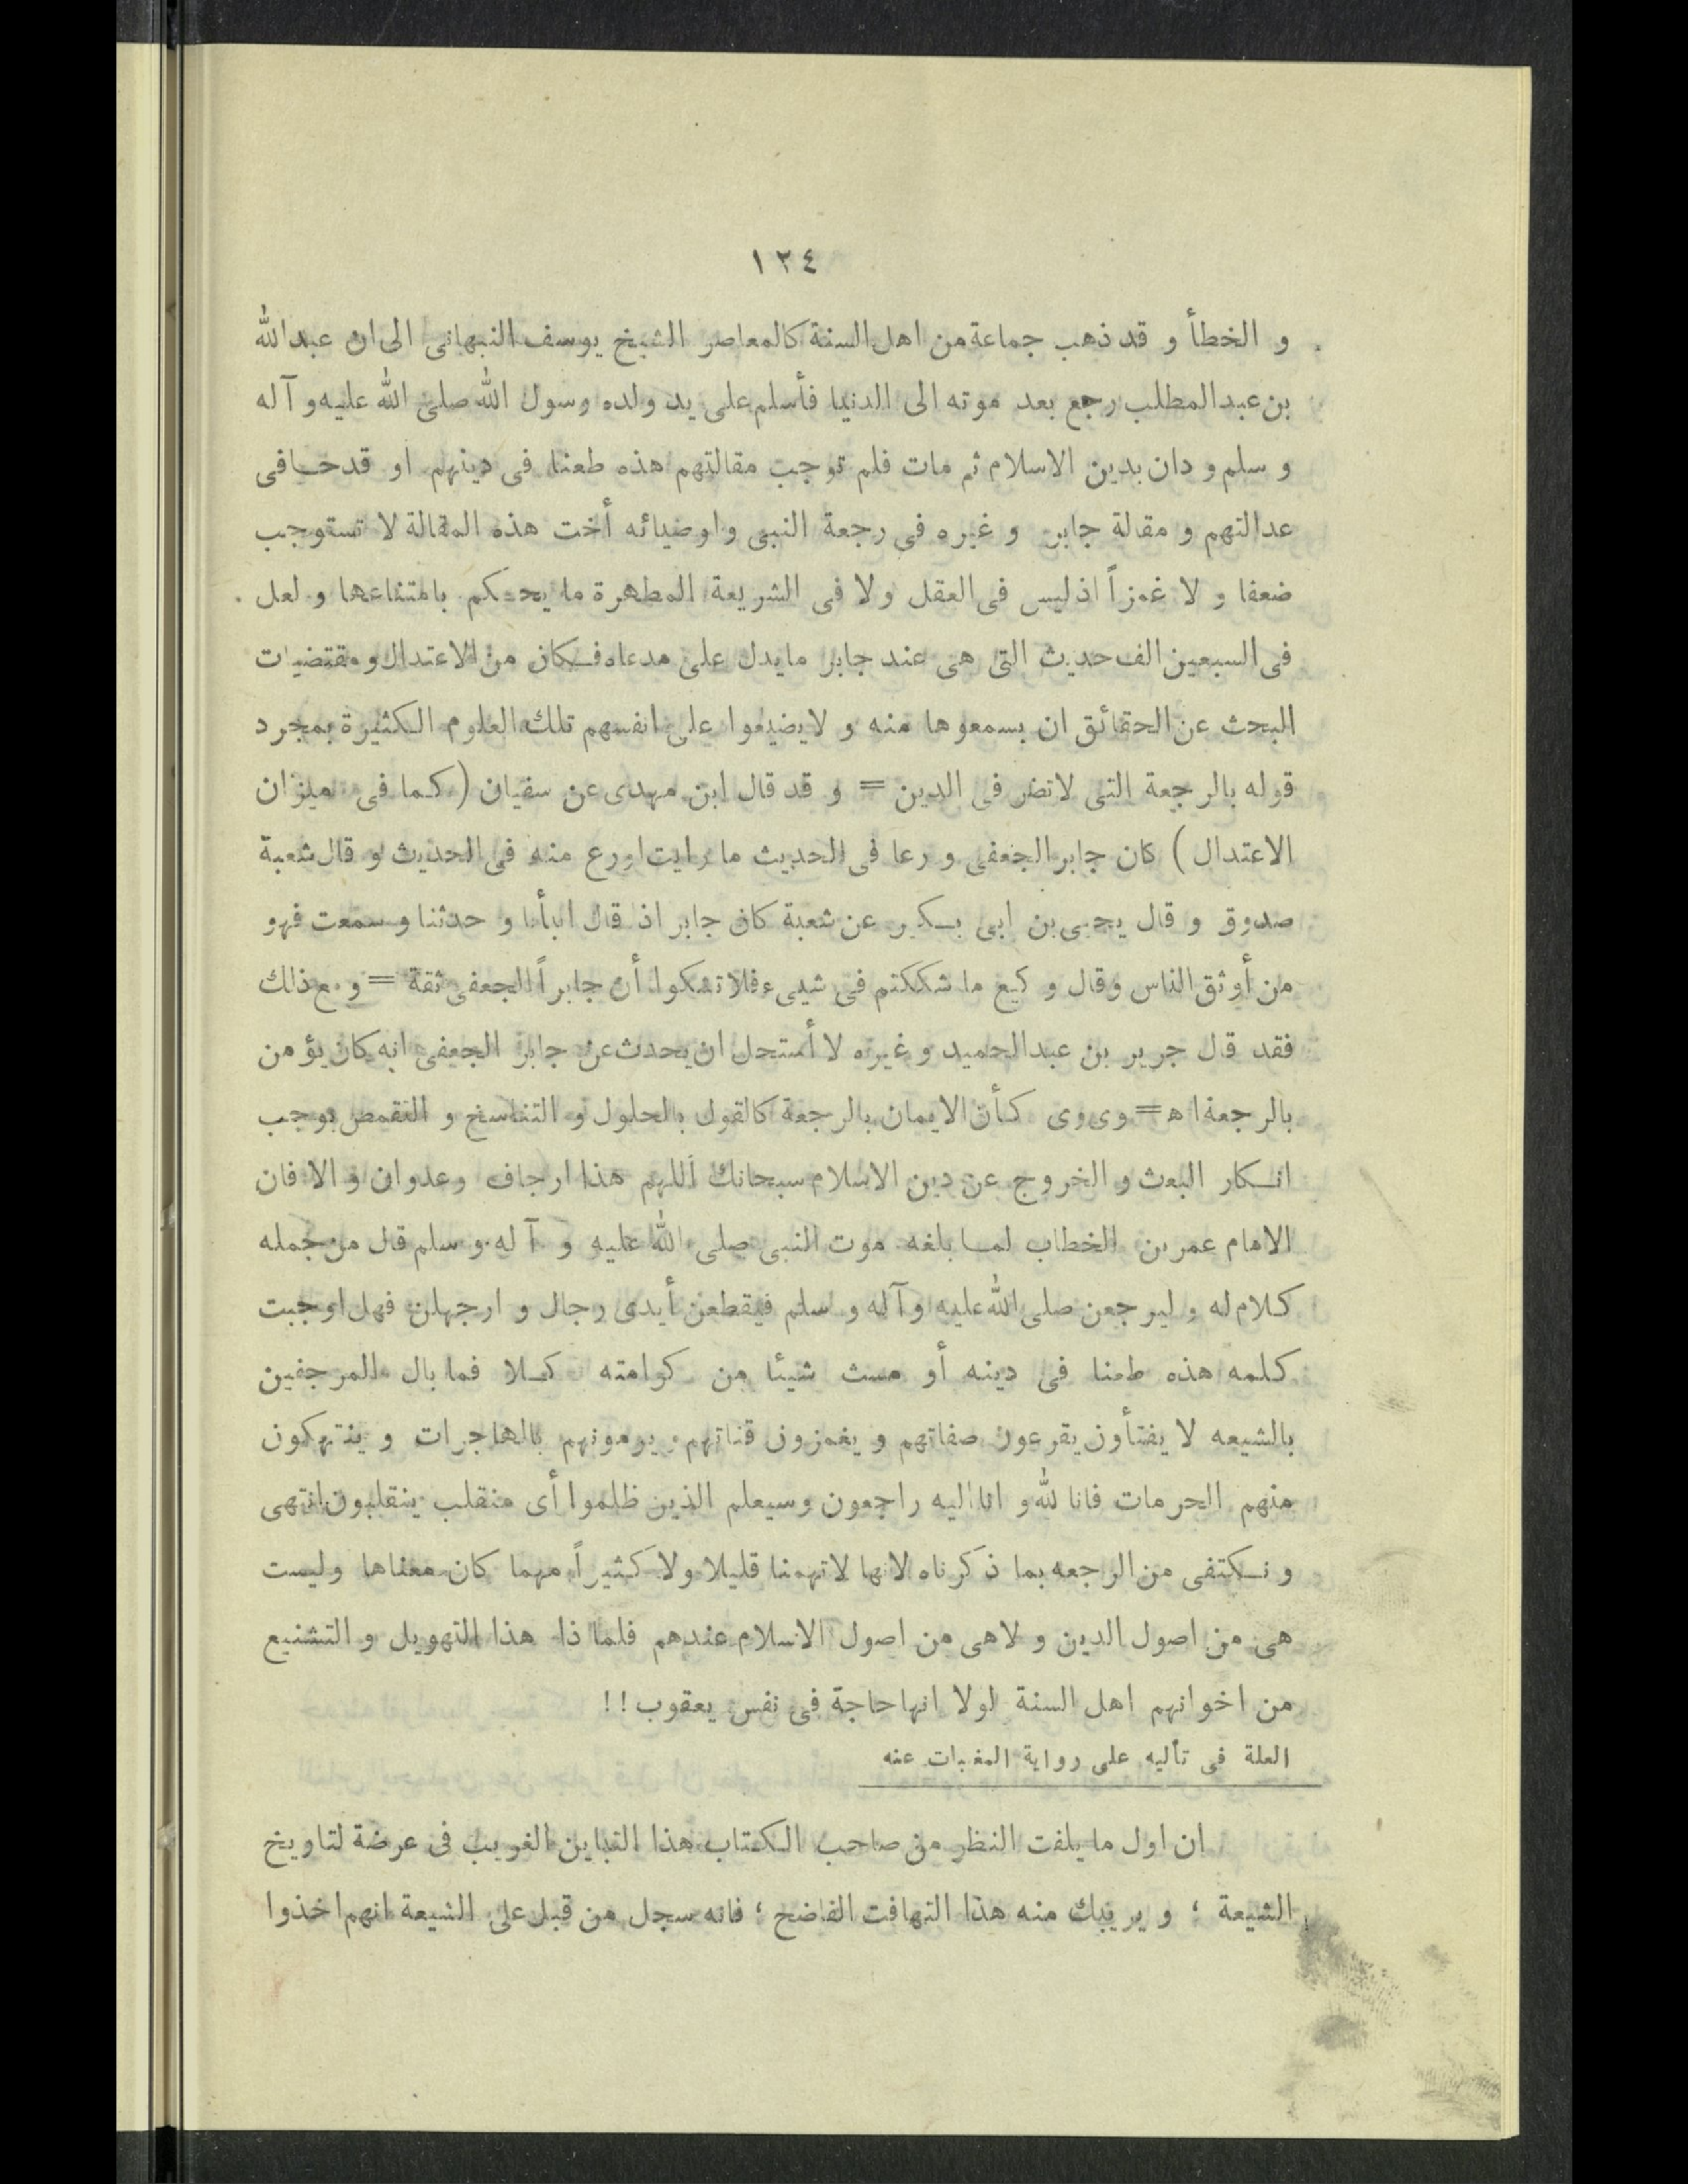 ١٢٤
و الخطأ و قد ذهب جماعة من اهل السنة كالمعاصر الشيخ يوسف النبهانى الى ان عبدالله
بن عبدالمطلب رجع بعد موته الى الدنيا فأسلم على يد ولده رسول الله صلى الله عليه و آله
و سلم و دان بدين الاسلام ثم مات فلم توجب مقالتهم هذه طعنا فى دينهم او قدحا فى
عدالتهم و مقالة جابر و غيره فى رجعة النبى و اوصيائه أخت هذه المقالة لا تستوجب
ضعفا و لا غمزاً اذ ليس فى العقل ولا فى الشريعة المطهرة ما يحكم بامتناعها و لعل
فى السبعين الف حديث التى هى عند جابر ما يدل على مدعاه فكان من الاعتدال و مقتضيات
البحث عن الحقائق ان يسمعوها منه و لا يضيعوا على انفسهم تلك العلوم الكثيرة بمجرد
قوله بالرجعة التى لا تضر فى الدين = و قد قال ابن مهدى عن سفيان ( كما فى ميزان
الاعتدال ) كان جابر الجعفى ورعا فى الحديث ما رايت اورع منه فى الحديث و قال شعبة
صدوق و قال يحيى بن ابى بكير عن شعبة كان جابر اذا قال انبأنا و حدثنا و سمعت فهو
من أوثق الناس وقال وكيع ما شككتم فى شيىء فلا تشكوا أن جابراً الجعفى ثقة = و مع ذلك
فقد قال جرير بن عبدالحميد و غيره لا أستحل ان يحدث عن جابر الجعفى انه كان يؤمن
بالرجعة اه = وى وى كأن الايمان بالرجعة كالقول بالحلول و التناسخ و التقمص يوجب
انكار البعث و الخروج عن دين الاسلام سبحانك اللهم هذا ارجاف وعدوان و الا فان
الامام عمر بن الخطاب لما بلغه موت النبى صلى الله عليه و آله و سلم قال من جمله
كلام له و ليرجعن صلى الله عليه وآله و سلم فيقطعن أيدى رجال و ارجهلن فهل اوجبت
كلمه هذه طعنا فى دينه أو مست شيئا من كرامته كلا فما بال المرجفين
بالشيعه لا يفتأون يقرعون صفاتهم و يغمزون قناتهم و يرمونهم بالهاجرات و ينتهكون
منهم الحرمات فانا لله و انا اليه راجعون وسيعلم الذين ظلموا أى منقلب ينقلبون انتهى
و نكتفى من الرجعه بما ذكرناه لانها لا تهمنا قليلا ولا كثيراً مهما كان معناها وليست
هى من اصول الدين و لا هى من اصول الاسلام عندهم فلماذا هذا التهويل و التشنيع
من اخوانهم اهل السنة لولا انها حاجة فى نفس يعقوب ! !
العلة فى تأليه على رواية المغيبات عنه
ان اول ما يلفت النظر من صاحب الكتاب هذا التباين الغريب فى عرضة لتاويخ
الشيعة ؛ و يريبك منه هذا التهافت الفاضح ؛ فانه سجل من قبل على الشيعة انهم اخذوا